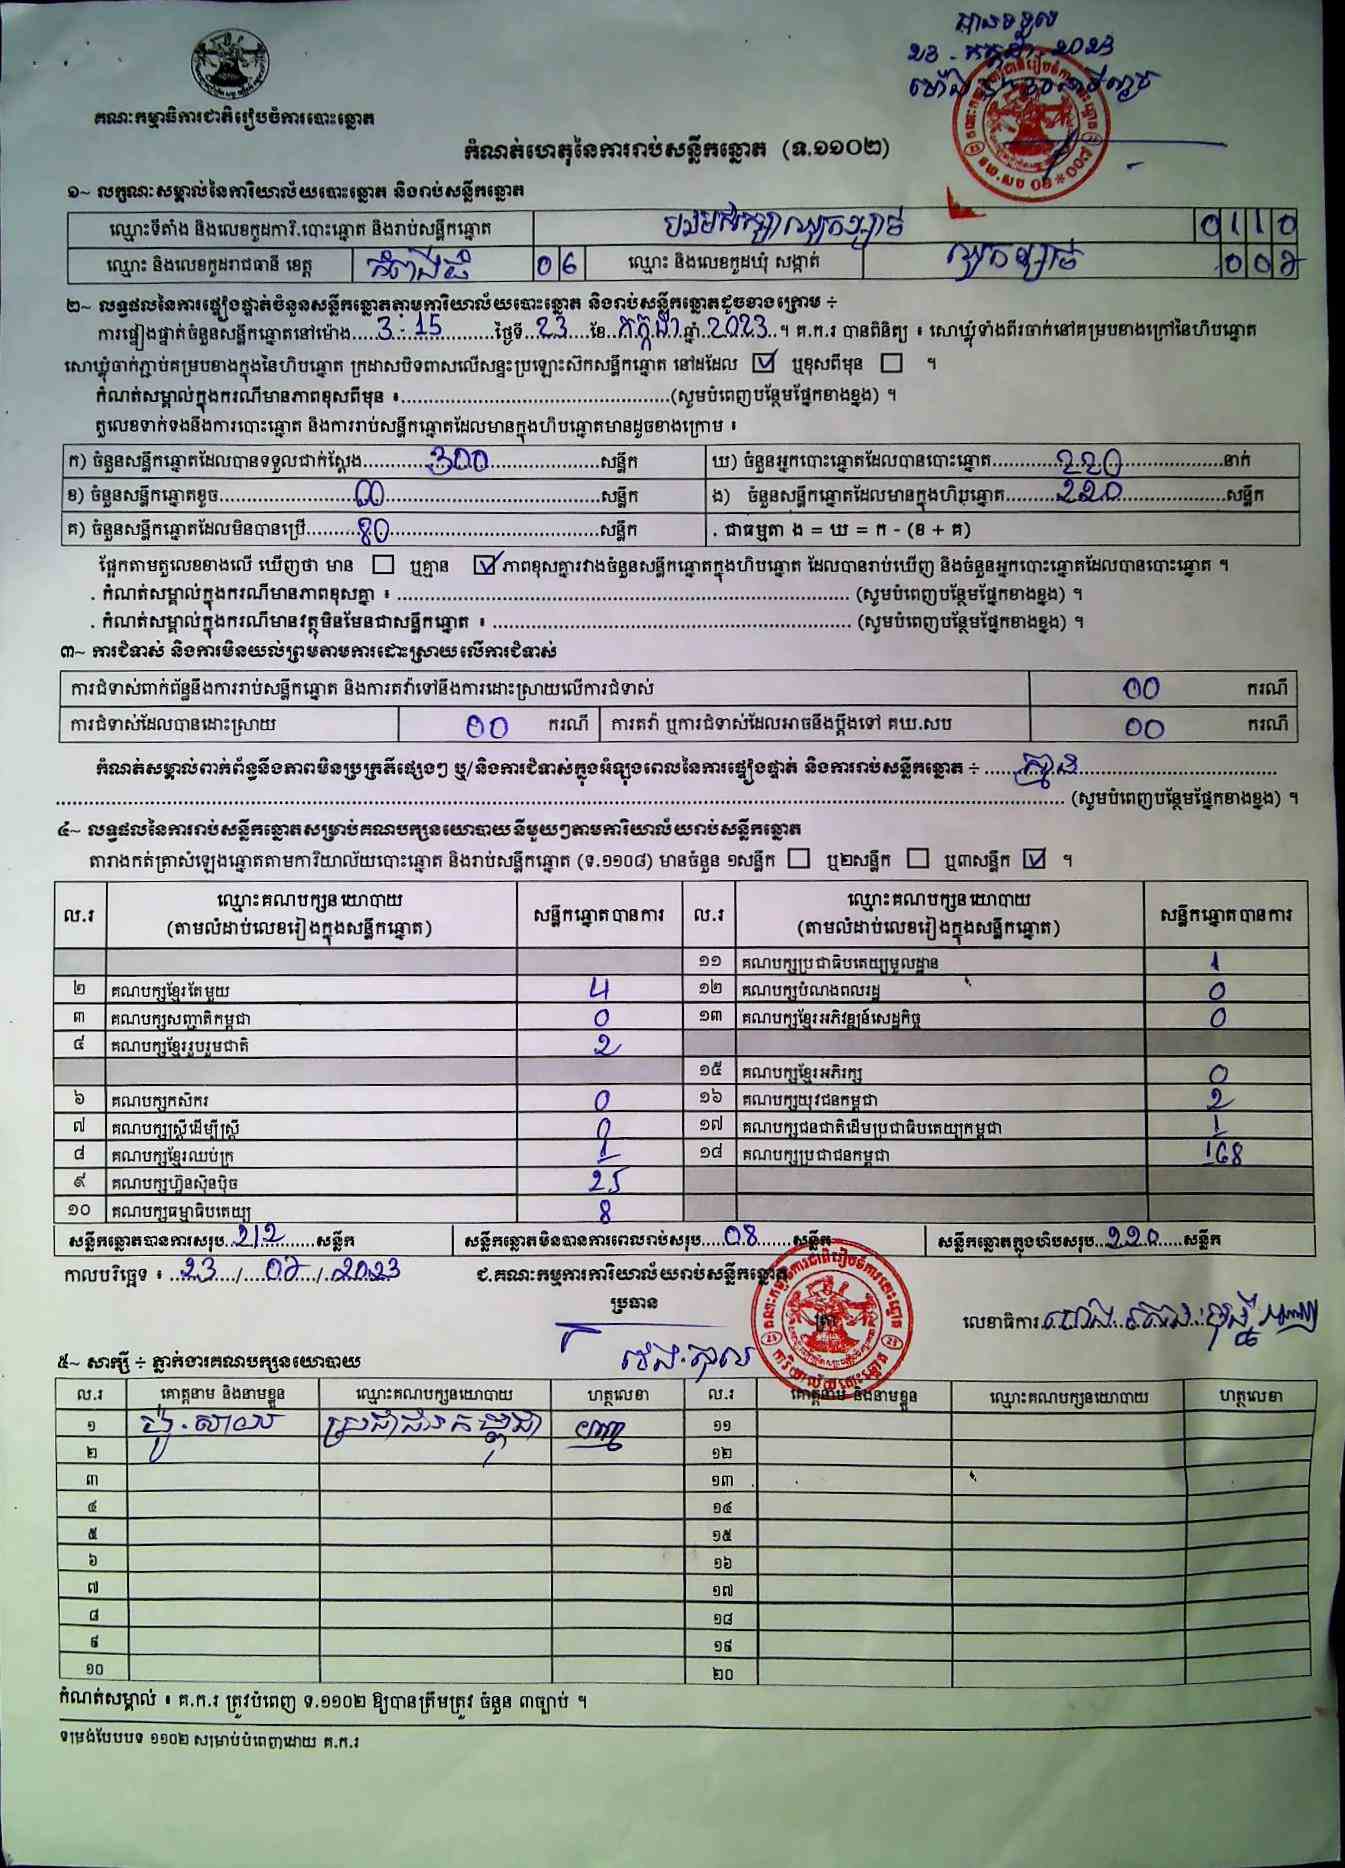 បានទទួល
23 - កក្កដា - 2023
គណៈកម្មាធិការជាតិរៀបចំការបោះឆ្នោត
កំណត់ហេតុនៃការរាប់សន្លឹកឆ្នោត (ទ.១១០២)
១~ លក្ខណៈសម្គាល់នៃការិយាល័យបោះឆ្នោត និងរាប់សន្លឹកឆ្នោត
ឈ្មោះទីតាំង និងលេខកូដការិ.បោះឆ្នោត និងរាប់សន្លឹកឆ្នោត 0110
ឈ្មោះ និងលេខកូដរាជធានី ខេត្ត កំពង់ធំ 06 ឈ្មោះ និងលេខកូដឃុំ សង្កាត់
២~ លទ្ធផលនៃការផ្ទៀងផ្ទាត់ចំនួនសន្លឹកឆ្នោតតាមការិយាល័យបោះឆ្នោត និងរាប់សន្លឹកឆ្នោតដូចខាងក្រោម ÷
ការផ្ទៀងផ្ទាត់ចំនួនសន្លឹកឆ្នោតនៅម៉ោង 3:15 ថ្ងៃទី 23 ខែ កក្កដា ឆ្នាំ 2023 ។ គ.ក.រ បានពិនិត្យ ៖ សោឃ្លុំទាំងពីរចាក់នៅគម្របខាងក្រៅនៃហិបឆ្នោត
សោឃ្លុំចាក់ភ្ជាប់គម្របខាងក្នុងនៃហិបឆ្នោត ក្រដាសបិទពាសលើសន្ទះប្រឡោះស៊កសន្លឹកឆ្នោត នៅដដែល ☑ ឬខុសពីមុន ☐ ។
កំណត់សម្គាល់ក្នុងករណីមានភាពខុសពីមុន ៖ (សូមបំពេញបន្ថែមផ្នែកខាងខ្នង) ។
តួលេខទាក់ទងនឹងការបោះឆ្នោត និងការរាប់សន្លឹកឆ្នោតដែលមានក្នុងហិបឆ្នោតមានដូចខាងក្រោម ៖
ក) ចំនួនសន្លឹកឆ្នោតដែលបានទទួលជាក់ស្តែង 300 សន្លឹក ឃ) ចំនួនអ្នកបោះឆ្នោតដែលបានបោះឆ្នោត 220 នាក់
ខ) ចំនួនសន្លឹកឆ្នោតខូច 00 សន្លឹក ង) ចំនួនសន្លឹកឆ្នោតដែលមានក្នុងហិបឆ្នោត 220 សន្លឹក
គ) ចំនួនសន្លឹកឆ្នោតដែលមិនបានប្រើ 80 សន្លឹក . ជាធម្មតា ង = ឃ = ក - (ខ + គ)
ផ្អែកតាមតួលេខខាងលើ ឃើញថា មាន ☐ ឬគ្មាន ☑ ភាពខុសគ្នារវាងចំនួនសន្លឹកឆ្នោតក្នុងហិបឆ្នោត ដែលបានរាប់ឃើញ និងចំនួនអ្នកបោះឆ្នោតដែលបានបោះឆ្នោត ។
. កំណត់សម្គាល់ក្នុងករណីមានភាពខុសគ្នា ៖ (សូមបំពេញបន្ថែមផ្នែកខាងខ្នង) ។
. កំណត់សម្គាល់ក្នុងករណីមានវត្ថុមិនមែនជាសន្លឹកឆ្នោត ៖ (សូមបំពេញបន្ថែមផ្នែកខាងខ្នង) ។
៣~ ការជំទាស់ និងការមិនយល់ព្រមតាមការដោះស្រាយលើការជំទាស់
ការជំទាស់ពាក់ព័ន្ធនឹងការរាប់សន្លឹកឆ្នោត និងការតវ៉ាទៅនឹងការដោះស្រាយលើការជំទាស់ 00 ករណី
ការជំទាស់ដែលបានដោះស្រាយ 00 ករណី ការតវ៉ា ឬការជំទាស់ដែលអាចនឹងប្តឹងទៅ គឃ.សប 00 ករណី
កំណត់សម្គាល់ពាក់ព័ន្ធនឹងភាពមិនប្រក្រតីផ្សេងៗ ឬ/និងការជំទាស់ក្នុងអំឡុងពេលនៃការផ្ទៀងផ្ទាត់ និងការរាប់សន្លឹកឆ្នោត ÷ គ្មាន
(សូមបំពេញបន្ថែមផ្នែកខាងខ្នង) ។
៤~ លទ្ធផលនៃការរាប់សន្លឹកឆ្នោតសម្រាប់គណបក្សនយោបាយនីមួយៗតាមការិយាល័យរាប់សន្លឹកឆ្នោត
តារាងកត់ត្រាសំឡេងឆ្នោតតាមការិយាល័យបោះឆ្នោត និងរាប់សន្លឹកឆ្នោត (ទ.១១០៨) មានចំនួន ១សន្លឹក ☐ ឬ២សន្លឹក ☐ ឬ៣សន្លឹក ☑ ។
ល.រ ឈ្មោះគណបក្សនយោបាយ (តាមលំដាប់លេខរៀងក្នុងសន្លឹកឆ្នោត) សន្លឹកឆ្នោតបានការ ល.រ ឈ្មោះគណបក្សនយោបាយ (តាមលំដាប់លេខរៀងក្នុងសន្លឹកឆ្នោត) សន្លឹកឆ្នោតបានការ
១១ គណបក្សប្រជាធិបតេយ្យមូលដ្ឋាន 1
២ គណបក្សខ្មែរតែមួយ 4 ១២ គណបក្សបំណងពលរដ្ឋ 0
៣ គណបក្សសញ្ជាតិកម្ពុជា 0 ១៣ គណបក្សខ្មែរអភិវឌ្ឍន៍សេដ្ឋកិច្ច 0
៤ គណបក្សខ្មែររួបរួមជាតិ 2
១៥ គណបក្សខ្មែរអភិរក្ស 0
៦ គណបក្សកសិករ 0 ១៦ គណបក្សយុវជនកម្ពុជា 2
៧ គណបក្សស្ត្រីដើម្បីស្ត្រី 0 ១៧ គណបក្សជនជាតិដើមប្រជាធិបតេយ្យកម្ពុជា 1
៨ គណបក្សខ្មែរឈប់ក្រ 1 ១៨ គណបក្សប្រជាជនកម្ពុជា 168
៩ គណបក្សហ្វ៊ុនស៊ិនប៉ិច 25
១០ គណបក្សធម្មាធិបតេយ្យ 8
សន្លឹកឆ្នោតបានការសរុប 212 សន្លឹក សន្លឹកឆ្នោតមិនបានការពេលរាប់សរុប 08 សន្លឹក សន្លឹកឆ្នោតក្នុងហិបសរុប 220 សន្លឹក
កាលបរិច្ឆេទ ៖ 23 / 07 / 2023 ជ.គណៈកម្មការការិយាល័យរាប់សន្លឹកឆ្នោត
ប្រធាន
លេខាធិការ
៥~ សាក្សី ÷ ភ្នាក់ងារគណបក្សនយោបាយ
ល.រ គោត្តនាម និងនាមខ្លួន ឈ្មោះគណបក្សនយោបាយ ហត្ថលេខា ល.រ គោត្តនាម និងនាមខ្លួន ឈ្មោះគណបក្សនយោបាយ ហត្ថលេខា
១ ប្រជាជនកម្ពុជា ១១
២ ១២
៣ ១៣
៤ ១៤
៥ ១៥
៦ ១៦
៧ ១៧
៨ ១៨
៩ ១៩
១០ ២០
កំណត់សម្គាល់ ៖ គ.ក.រ ត្រូវបំពេញ ទ.១១០២ ឱ្យបានត្រឹមត្រូវ ចំនួន ៣ច្បាប់ ។
ទម្រង់បែបបទ ១១០២ សម្រាប់បំពេញដោយ គ.ក.រ